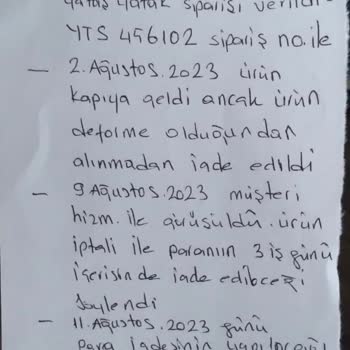 yataş yatak siparişi verildi.
YTS 456102 sipariş no.ile
— 2.Ağustos.2023 ürün
kapıya geldi ancak ürün
deforme olduğundan
alınmadan iade edildi
— 9 Ağustos.2023 müşteri
hizm. ile görüşüldü. ürün
iptali ile paranın 3 iş günü
içerisinde iade edilbceği
söylendi
— 11.Ağustos.2023 günü
para iadesinin yapılacağı